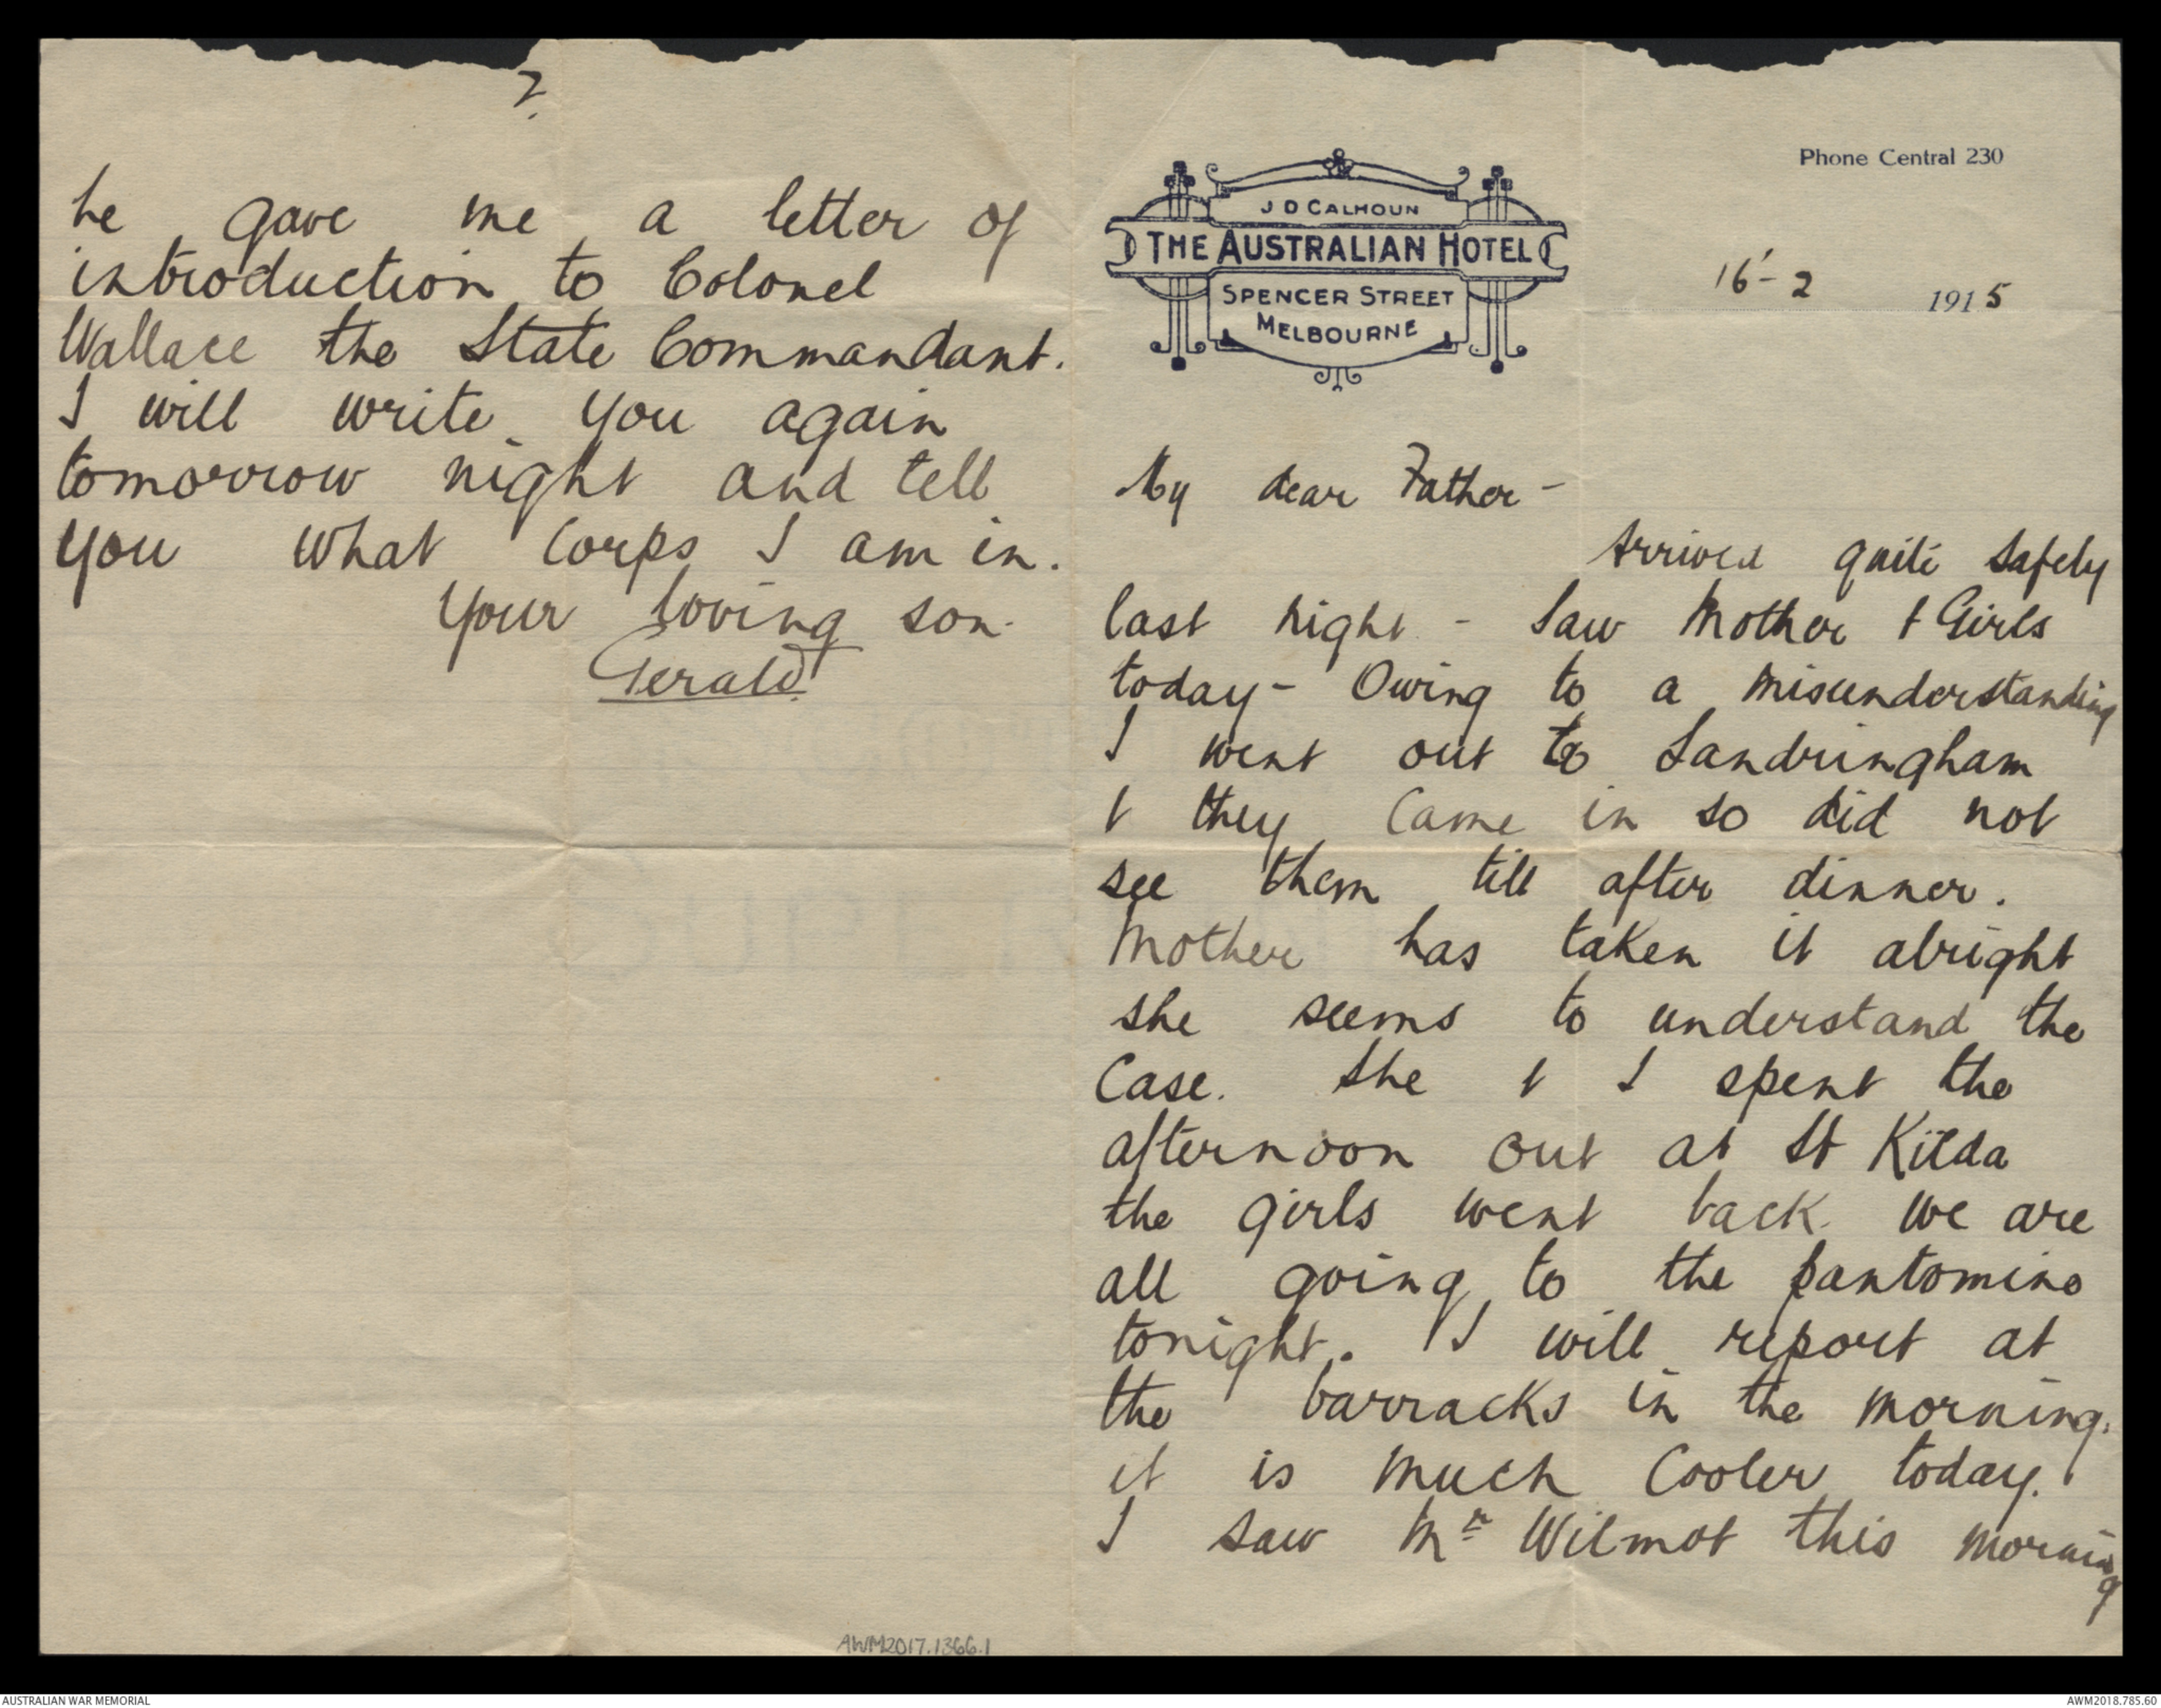 Phone Central 230
J D CALHOUN
THE AUSTRALIAN HOTEL
SPENCER STREET
MELBOURNE
16-2 1915
My dear Father -
Arrived quite safely
last night - Saw Mother & Girls
today - Owing to a misunderstanding
I went out to Sandringham
& they came in so did not
see them till after dinner.
Mother has taken it alright
she seems to understand the
case. She & I spent the
afternoon out at St Kilda
the girls went back. We are
all going to the pantomine
tonight. I will report at
the barracks in the morning.
it is much cooler today.
I saw Mr Wilmot this morning
2.
he gave me a letter of
introduction to Colonel
Wallace the State Commandant.
I will write you again
tomorrow night and tell
you what Corps I am in.
Your loving son.
Gerald
AWM2017.1366.1
AUSTRALIAN WAR MEMORIAL
AWM2018.785.60